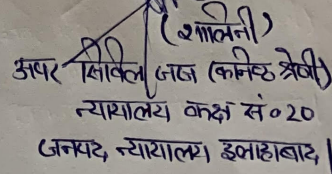 (शालिनी)
अपर सिविल जज (कनिष्ठ श्रेणी)
न्यायालय कक्ष सं० 20
जनपद न्यायालय, इलाहाबाद।